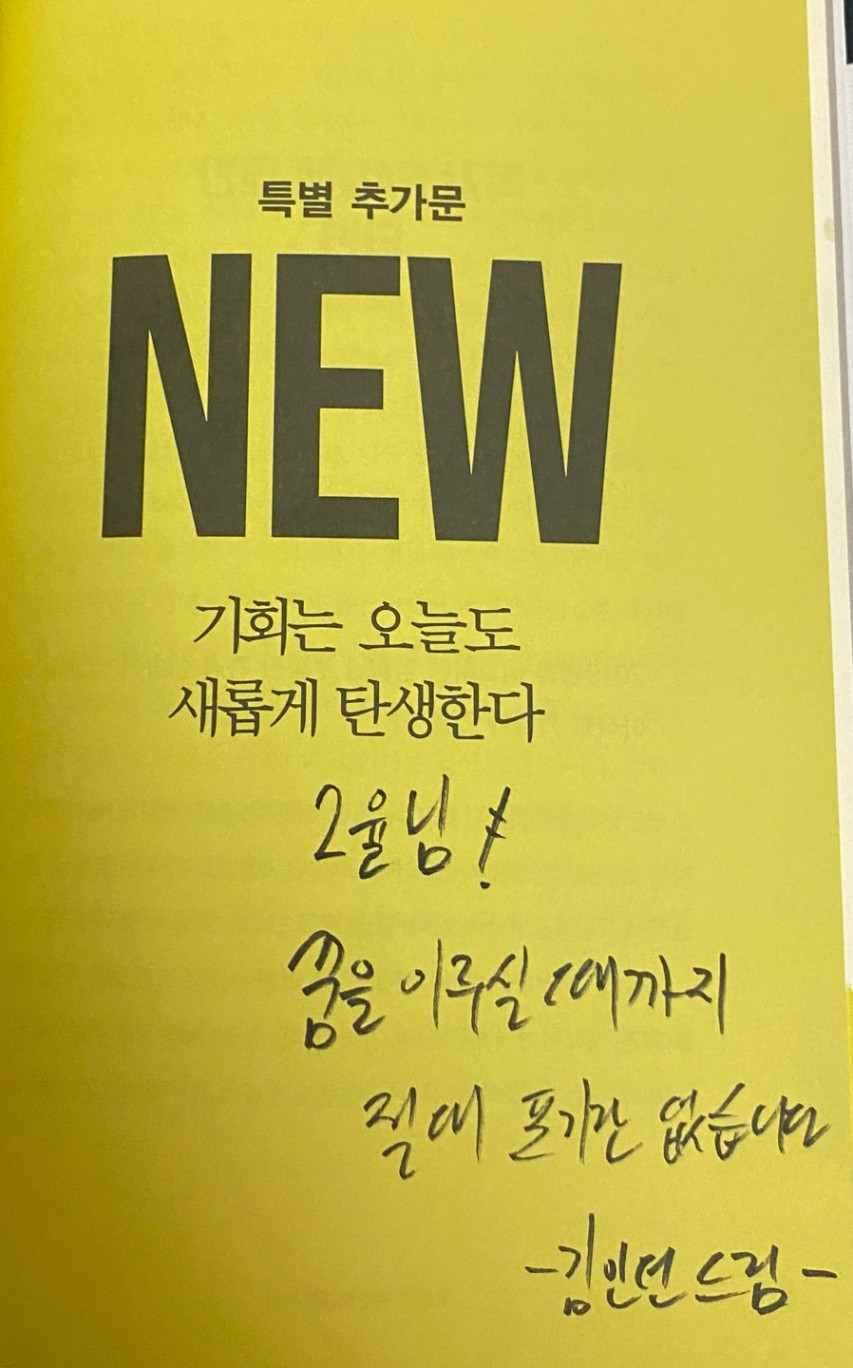 특별 추가문
NEW
기회는 오늘도
새롭게 탄생한다
2율님!
꿈을 이루실 때까지
절대 포기란 없습니다
-김인턴 드림-